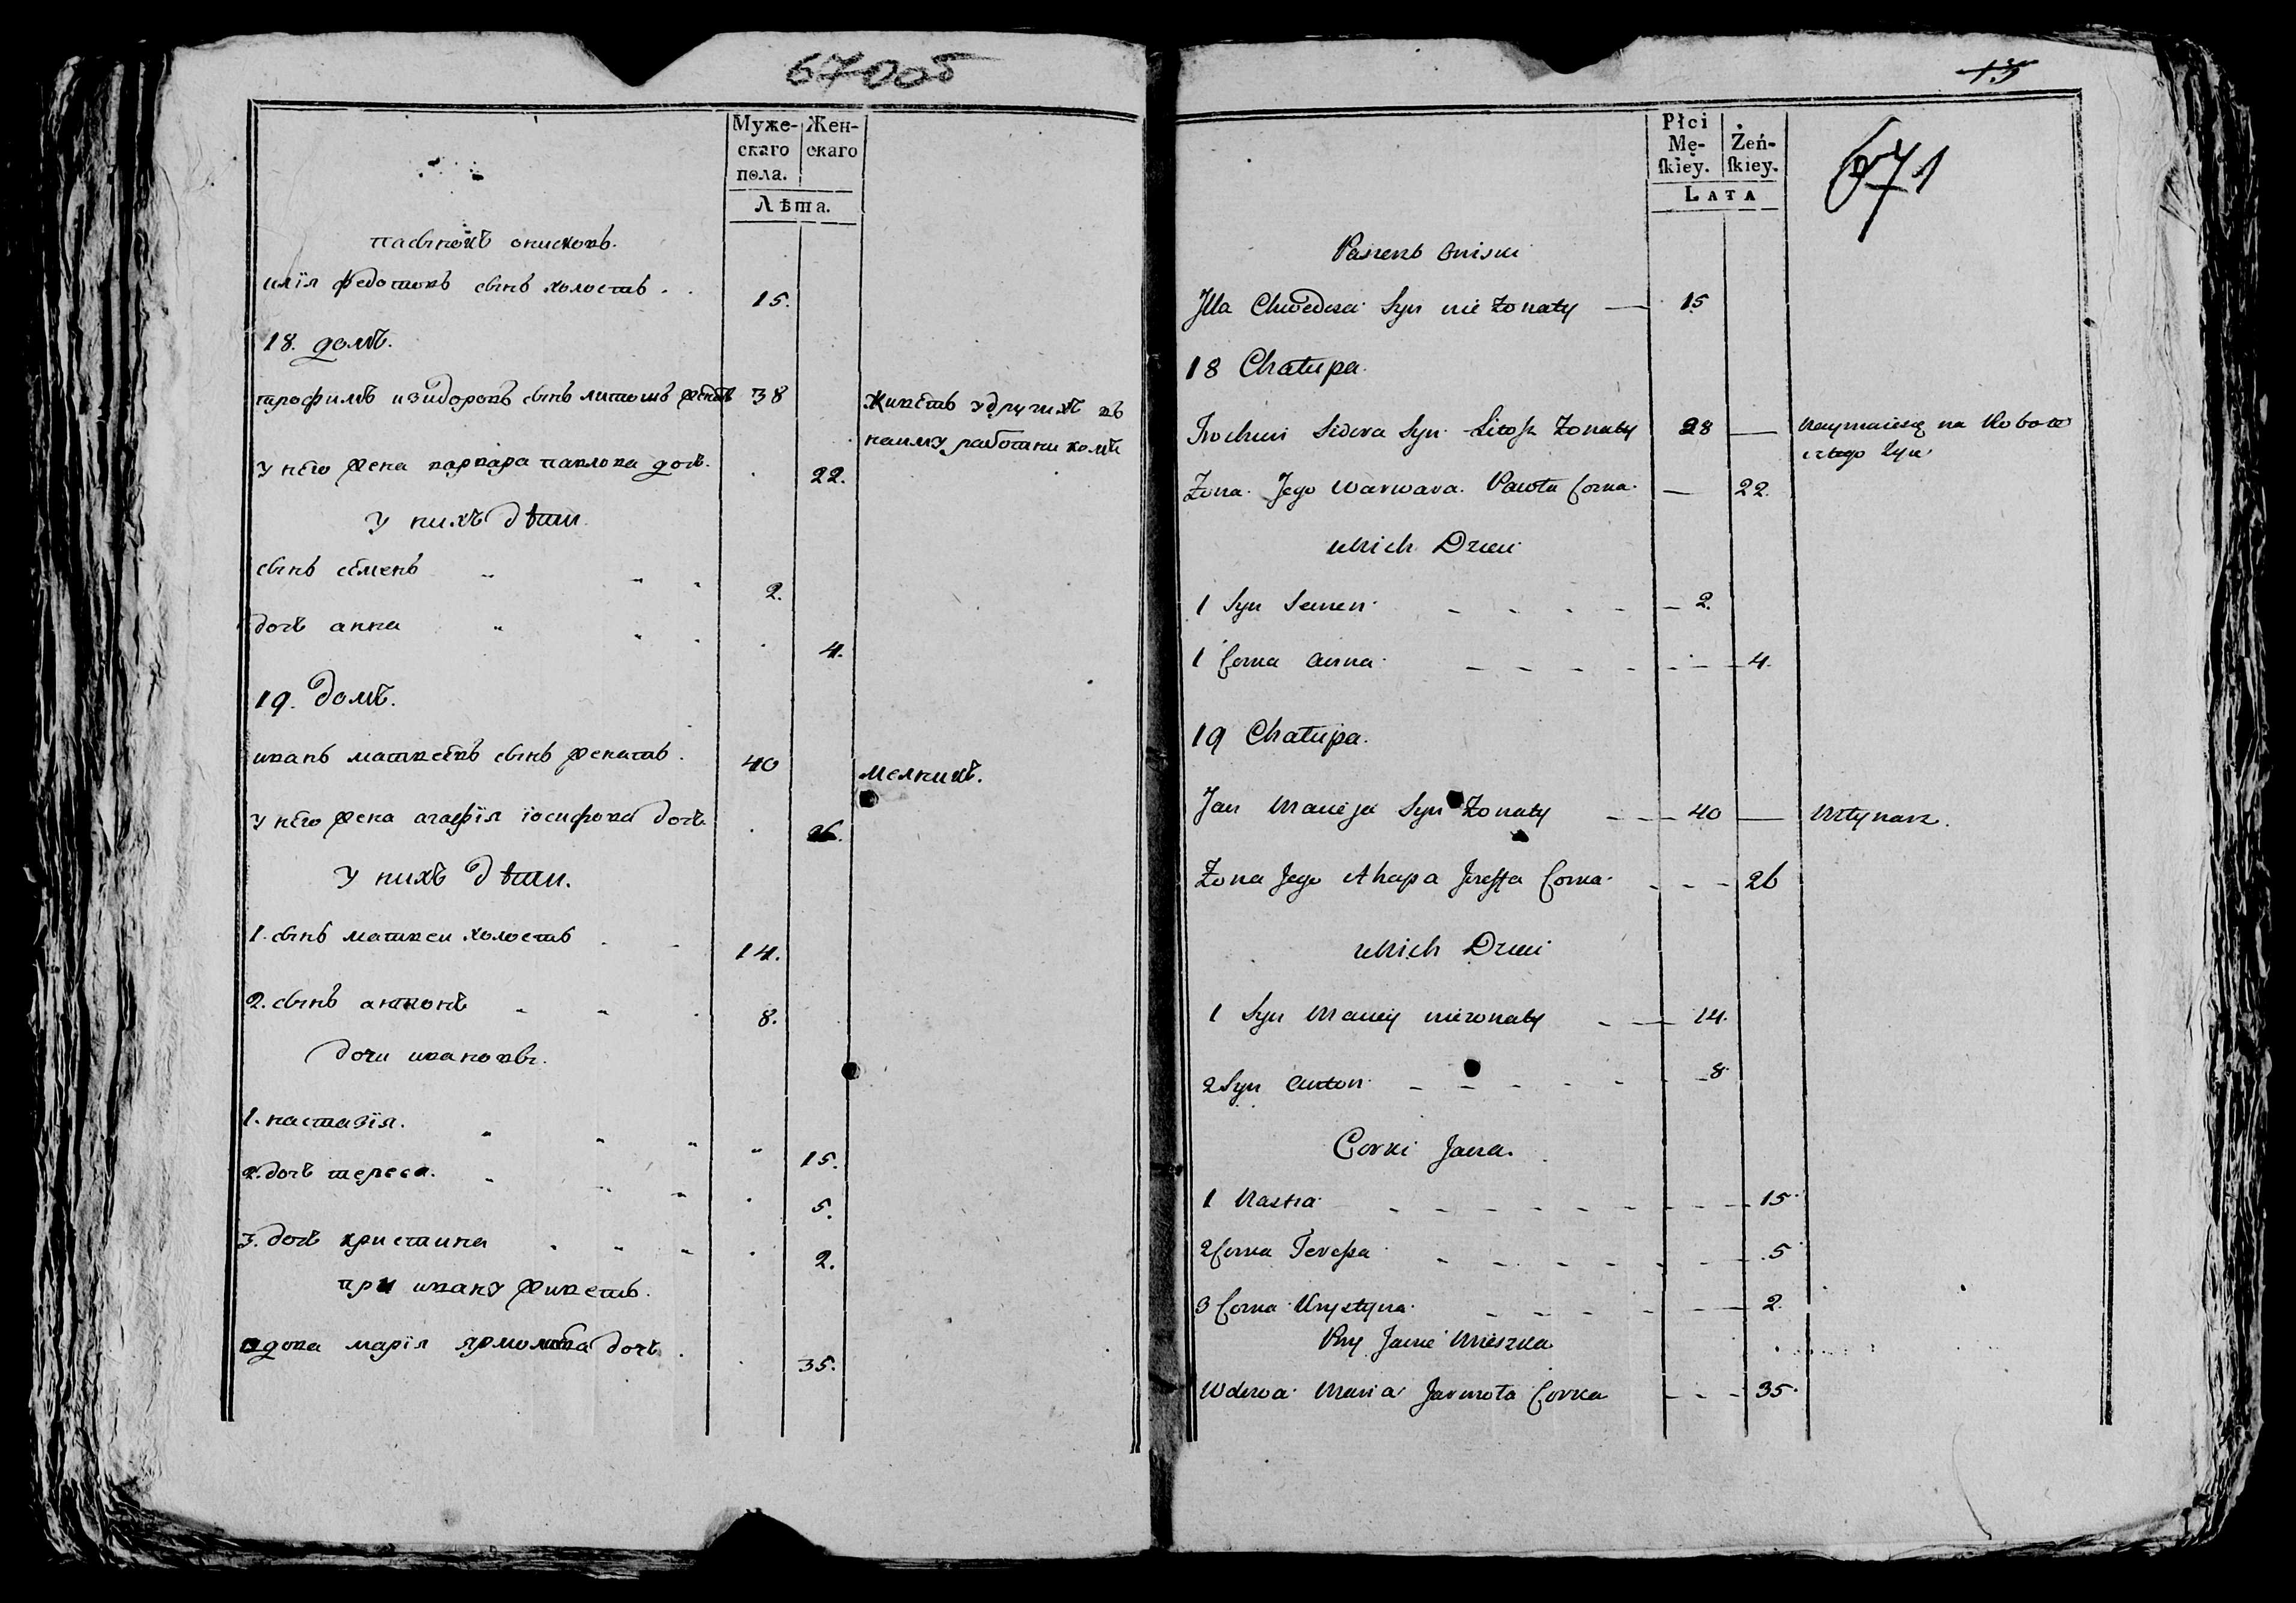 670 об
Муже-
скаго
пола.
Жен-
скаго
Лѣта.
пасынокъ онисковъ.
илїя федотовъ сынъ холостъ 15.
18. домъ.
трофимъ изидоровъ сынъ литошъ женатъ 38 живетъ у других въ
найму работникомъ
у него жена варвара павлова дочь. 22.
у нихъ дѣти
сынъ семенъ 2.
дочь анна 4.
19. домъ.
иванъ матвеевъ сынъ женатъ. 40 мелникъ.
у него жена агафїя іосифова дочь 26.
у нихъ дѣти.
1. сынъ матвеи холостъ 14.
2. сынъ антонъ 8.
дочи ивановы.
1. настазїя. 15.
2. дочь тереса. 5.
3. дочь христина 2.
при ивану живетъ.
вдова марїя ярмолова дочь 35.
15
671
Płci
Mę-
ſkiey.
Żeń-
ſkiey.
LATA
Pasierb Oniski
Jlla Chwedora Syn nie Żonaty 15
18 Chałupa.
Trochim Sidora Syn Litosz Żonaty 28 Naymuiesię na Robotę
i z tego Żyie
Żona Jego Warwara Pawła Corka 22.
u Nich Dzieci
1 Syn Semen 2.
1 Corka Anna 4.
19 Chałupa.
Jan Macieja Syn Żonaty 40 Młynarz.
Żona Jego Ahapa Jozeffa Corka 26
u Nich Dzieci
1 Syn Maciey nieżonaty 14.
2 Syn Anton 8.
Corki Jana.
1 Nasta 15
2 Corka Teressa 5
3 Corka Krystyna 2.
Przy Janie Mieszka
Wdowa Maria Jarmoła Corka 35.